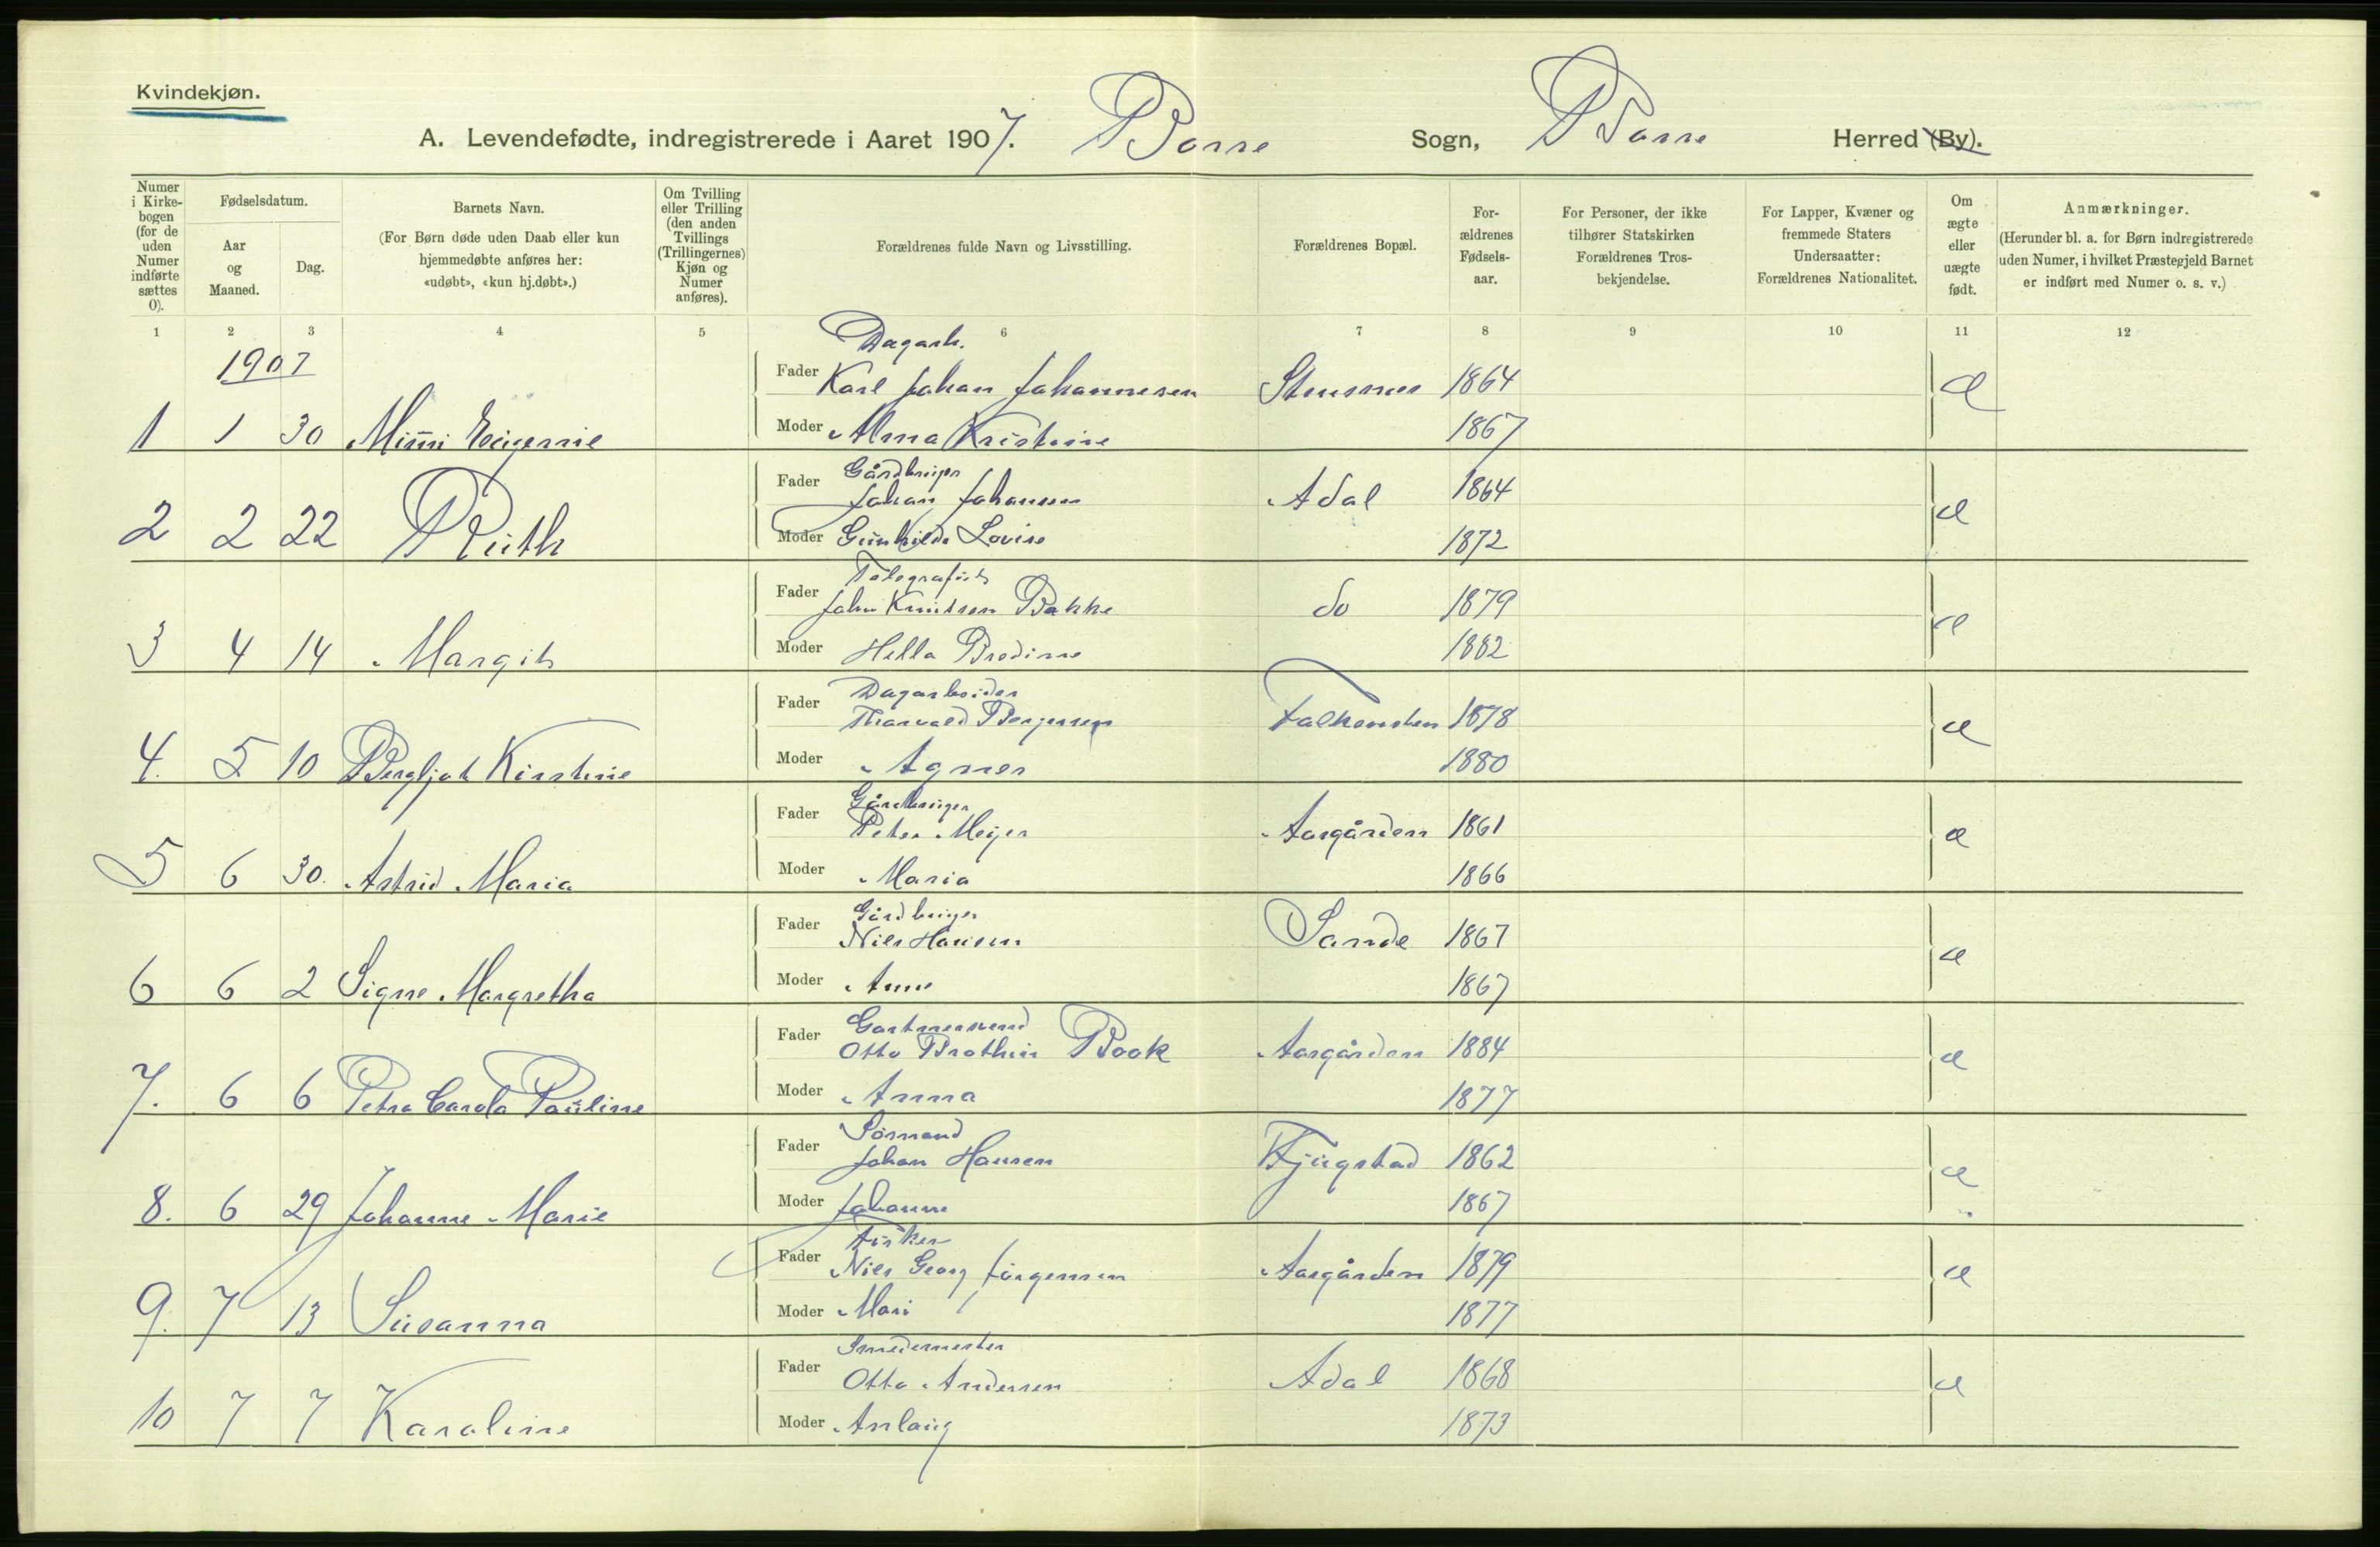 Kvindekjøn.
A. Levendefødte, indregistrerede i Aaret 1907. Borre Sogn, Borre Herred (By).
Numer i Kirkebogen (for de uden Numer indførte sættes 0).
Fødselsdatum.
Aar og Maaned.
Dag.
Barnets Navn.
(For Børn døde uden Daab eller kun hjemmedøbte anføres her: «udøbt», «kun hj.døbt».)
Om Tvilling eller Trilling (den anden Tvillings (Trillingernes) Kjøn og Numer anføres).
Forældrenes fulde Navn og Livsstilling.
Forældrenes Bopæl.
Forældrenes Fødselsaar.
For Personer, der ikke tilhører Statskirken Forældrenes Trosbekjendelse.
For Lapper, Kvæner og fremmede Staters Undersaatter: Forældrenes Nationalitet.
Om ægte eller uægte født.
Anmærkninger.
(Herunder bl. a. for Børn indregistrerede uden Numer, i hvilket Præstegjeld Barnet er indført med Numer o. s. v.)
1 2 3 4 5 6 7 8 9 10 11 12
1907
Dagarb.
Fader Karl Johan Johannesen 1864 æ
1 1 30 Mimi Eugenie Moder Alma Kristine 1867
Gårdbruger
Fader Johan Johansen Adal 1864 æ
2 2 22 Ruth Moder Gunhilda Lovise 1872
Telegrafist
Fader John Knudsen Bakke do 1879 æ
3 4 14 Margit Moder Hella Bredine 1882
Dagarbeider
Fader Thorvald Borgersen Falkensten 1878 æ
4. 5 10 Bergljot Kirstine Moder Agnes 1880
Gårdbruger
Fader Peter Meyer Aasgården 1861 æ
5 6 30. Astrid Maria Moder Maria 1866
Gårdbruger
Fader Nils Hansen Sande 1867 æ
6 6 2 Signe Margretha Moder Anne 1867
Gartnersvend
Fader Otto Book Aasgården 1884 æ
7. 6 6 Petra Carola Pauline Moder Anna 1877
Sömand
Fader Johan Hansen Kjugstad 1862 æ
8. 6 29 Johanne Marie Moder Johanne 1867
Fisker
Fader Nils Georg Jörgensen Aasgården 1879 æ
9. 7 13 Susanna Moder Mari 1877
Smedemester
Fader Otto Andersen Adal 1868 æ
10 7 7 Karoline Moder Anlaug 1873